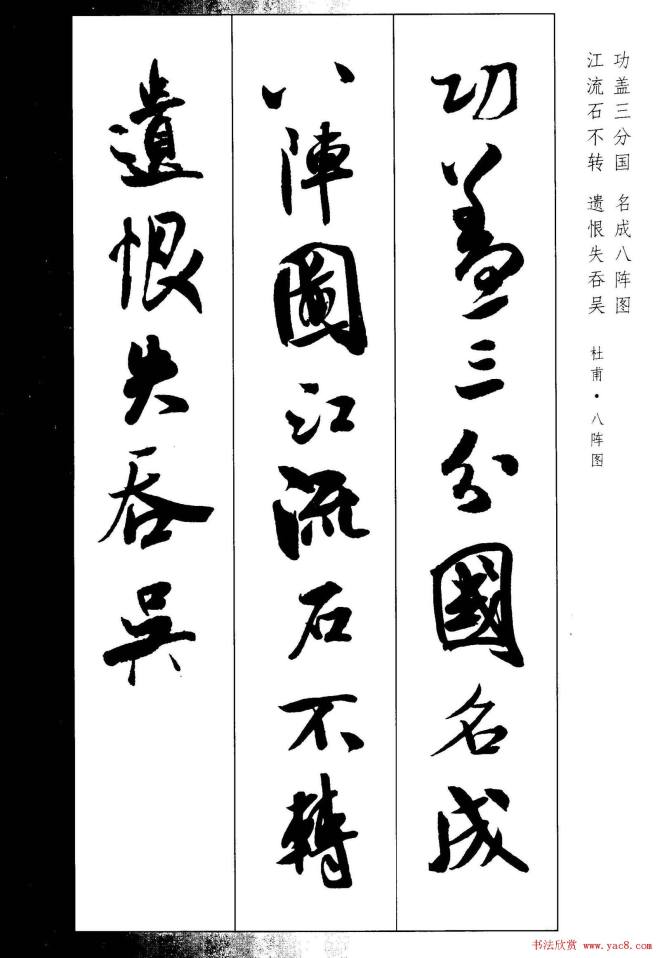 功盖三分国 名成八阵图
江流石不转 遗恨失吞吴
杜甫·八阵图
功蓋三分國名成
八陣圖江流石不轉
遺恨失吞吳
书法欣赏 www.yac8.com